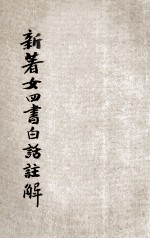 新著女四書白話註解